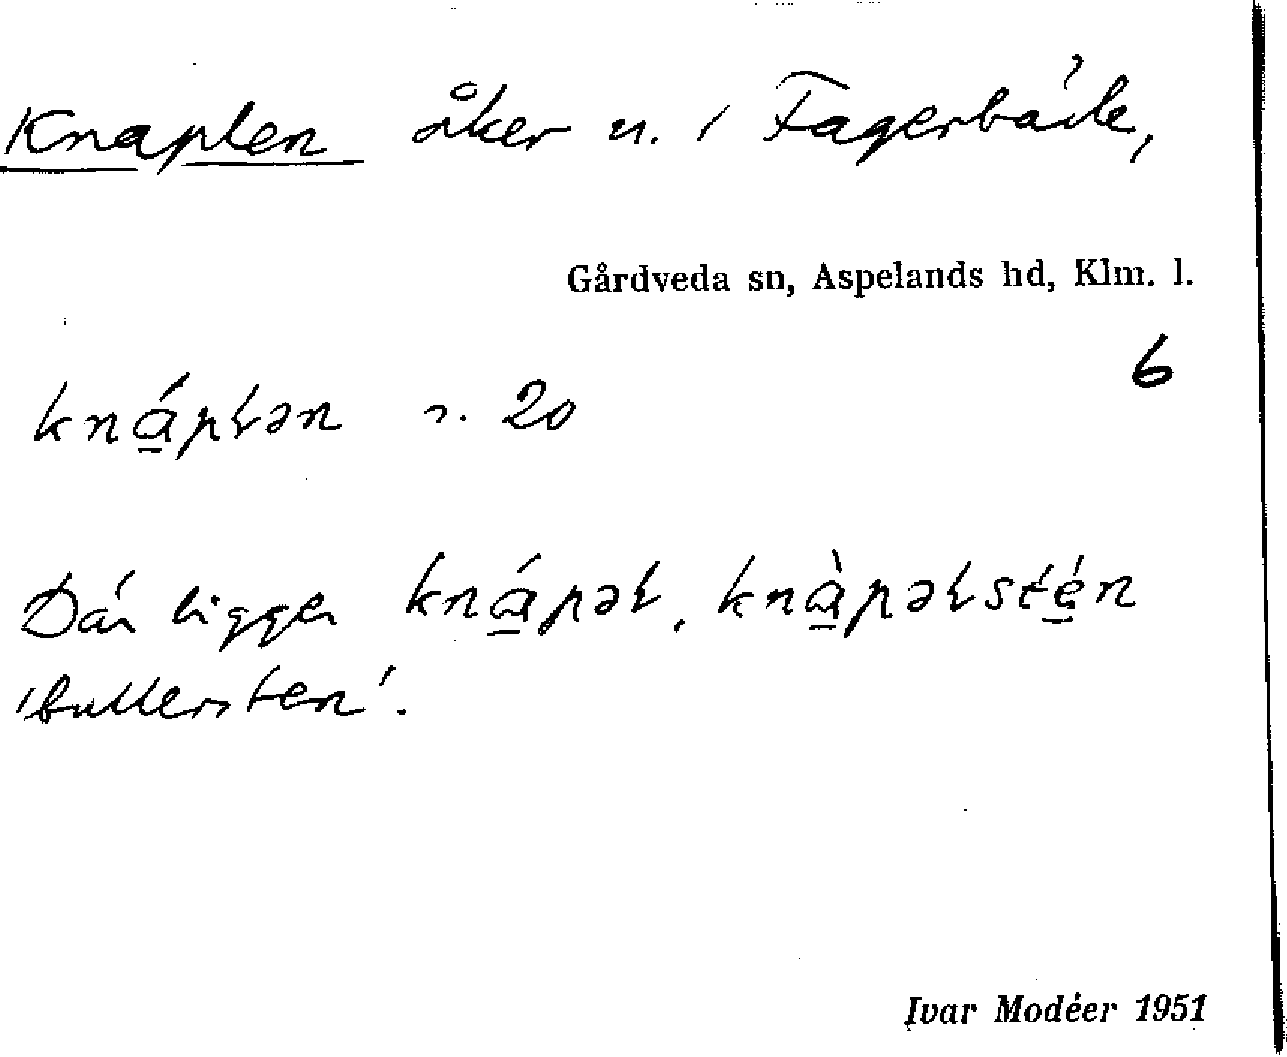 Knaplen åker n. i Fagerbäck,
Gårdveda sn, Aspelands hd, Klm. l.
6
knáplən n. 20
Där ligger knápəl, knàpəlstén
'bullersten'.
Ivar Modéer 1951